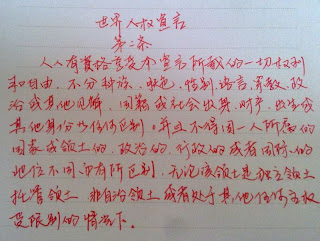 世界人权宣言
第二条
人人有資格享受本宣言所载的一切权利
和自由，不分种族、肤色、性别、语言、宗教、政
治或其他见解、国籍或社会出身、财产、出生或
其他身分等任何区别。并且不得因一人所属的
国家或领土的、政治的、行政的或者国际的
地位不同而有所区别，无论该领土是独立领土
托管领土、非自治领土或者处于其他任何主权
受限制的情况下。